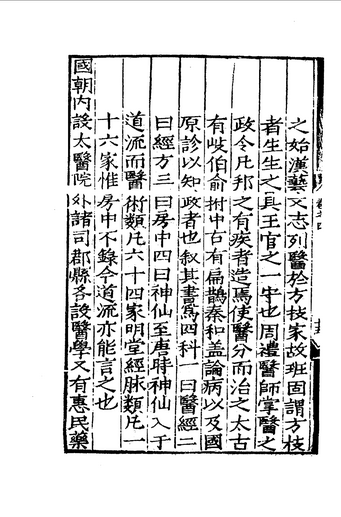 之始漢藝文志列醫於方技家故班固謂方技
者生生之具王官之一守也周禮醫師掌醫之
政令凡邦之有疾者造焉使醫分而治之太古
有岐伯俞拊中古有扁鵲秦和盖論病以及國
原診以知政者也叙其書爲四科一曰醫經二
曰經方三曰房中四曰神仙至唐時神仙入于
道流而醫術類凡六十四家明堂經脉類凡一
十六家惟房中不錄今道流亦能言之也
國朝内設太醫院外諸司郡縣各設醫學又有惠民藥